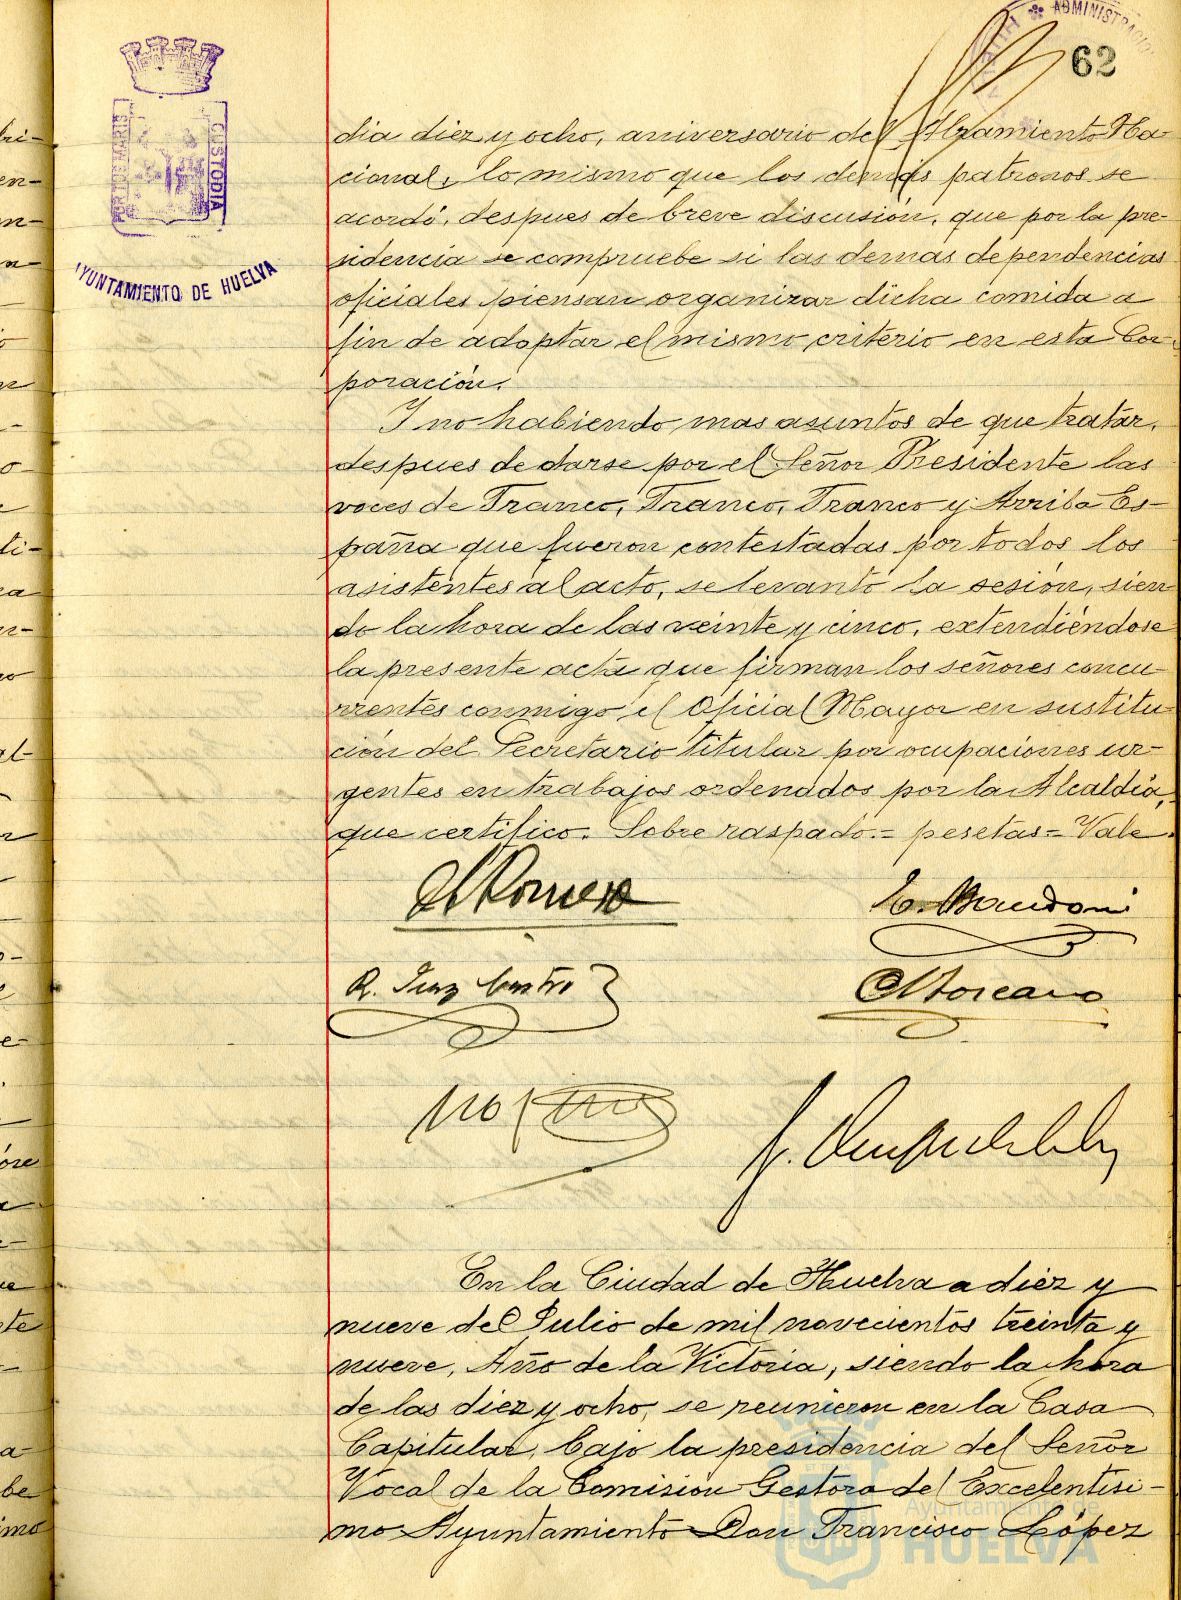 ADMINISTRACION
62
PORTUS MARIS
CUSTODIA
AYUNTAMIENTO DE HUELVA
dia diez y ocho, aniversario del Alzamiento Na-
cional, lo mismo que los demás patronos se
acordó, despues de breve discusión, que por la pre-
sidencia se compruebe si las demas dependencias
oficiales piensan organizar dicha comida a
fin de adoptar el mismo criterio en esta Cor-
poración.
Y no habiendo mas asuntos de que tratar,
despues de darse por el Señor Presidente las
voces de Franco, Franco, Franco y Arriba Es-
paña que fueron contestadas por todos los
asistentes al acto, se levantó la sesión, sien
do la hora de las veinte y cinco, extendiéndose
la presente acta que firman los señores concu-
rrentes conmigo el Oficial Mayor en sustitu-
ción del Secretario titular por ocupaciones ur-
gentes en trabajos ordenados por la Alcaldia,
que certifico. Sobre raspado.= pesetas= Vale.
Romero
E. Mandoni
R. Castro
En la Ciudad de Huelva a diez y
nueve del Julio de mil novecientos treinta y
nueve, Año de la Victoria, siendo la hora
de las diez y ocho, se reunieron en la Casa
Capitular, bajo la presidencia del Señor
Vocal de la Comision Gestora del Excelentisi-
mo Ayuntamiento Don Francisco López
Ayuntamiento de
HUELVA